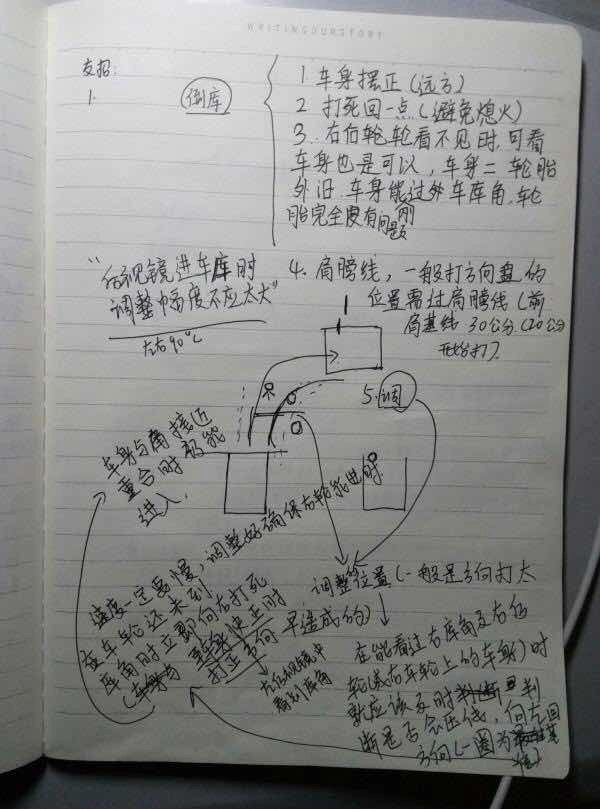 WRITINGOURSTORY
支招:
1. 倒库
1 车身摆正(远方)
2 打死回一点(避免熄火)
3. 右后轮轮看不见时,可看
车身也是可以,车身二轮胎
外旧.车身能过外车库角,轮
胎完全没有问题
4. 肩膀线,一般打方向盘的
位置需过肩膀线(前
肩基线 30公分(20公分
开始打)
"后视镜进车库时
调整幅度不应太大"
左右90℃
5.调
车身与角接近
重合时都能
进入.
速度一定要慢,调整好确保右轮能进时
在车轮还未到
库角时立即向右打死
(车身与
车身使正时
打正方向
左后视镜中
看到库角
调整位置(一般是方向打太
早造成的)
在能看过右库角及右后
轮(及右车轮上的车身)时
就应该及时判
断是否会压线,向左回
方向(一圈为